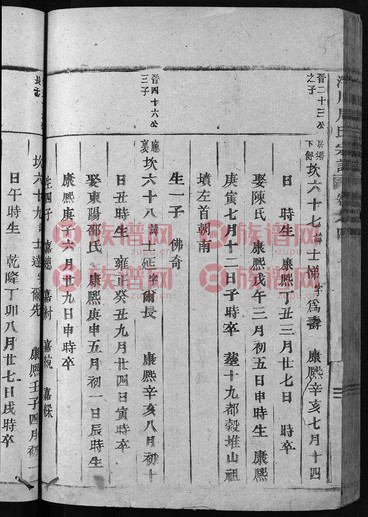 周氏宗譜
晋二十三公
之子
坎六十七 士悌 字爲壽 康熙辛亥七月十四
日 時生 康熙丁丑三月廿七日 時卒
娶陳氏 康熙戊午三月初五日申時生 康熙
庚寅七月十二日子時卒 塟十九都穀堆山祖
墳左首朝南
生一子 佛奇
晋四十六公
三子
坎六十八 士延 爾長 康熙辛亥八月初十
日丑時生 雍正癸丑九月廿四日寅時卒
娶東陽邵氏 康熙庚申五月初一日辰時生
康熙庚子六月廿九日申時卒
生四子 嘉德 嘉樹 嘉
坎六十九 士達 爾先 康熙壬子四月初一
日午時生 乾隆丁卯八月廿七日戌時卒
族谱网